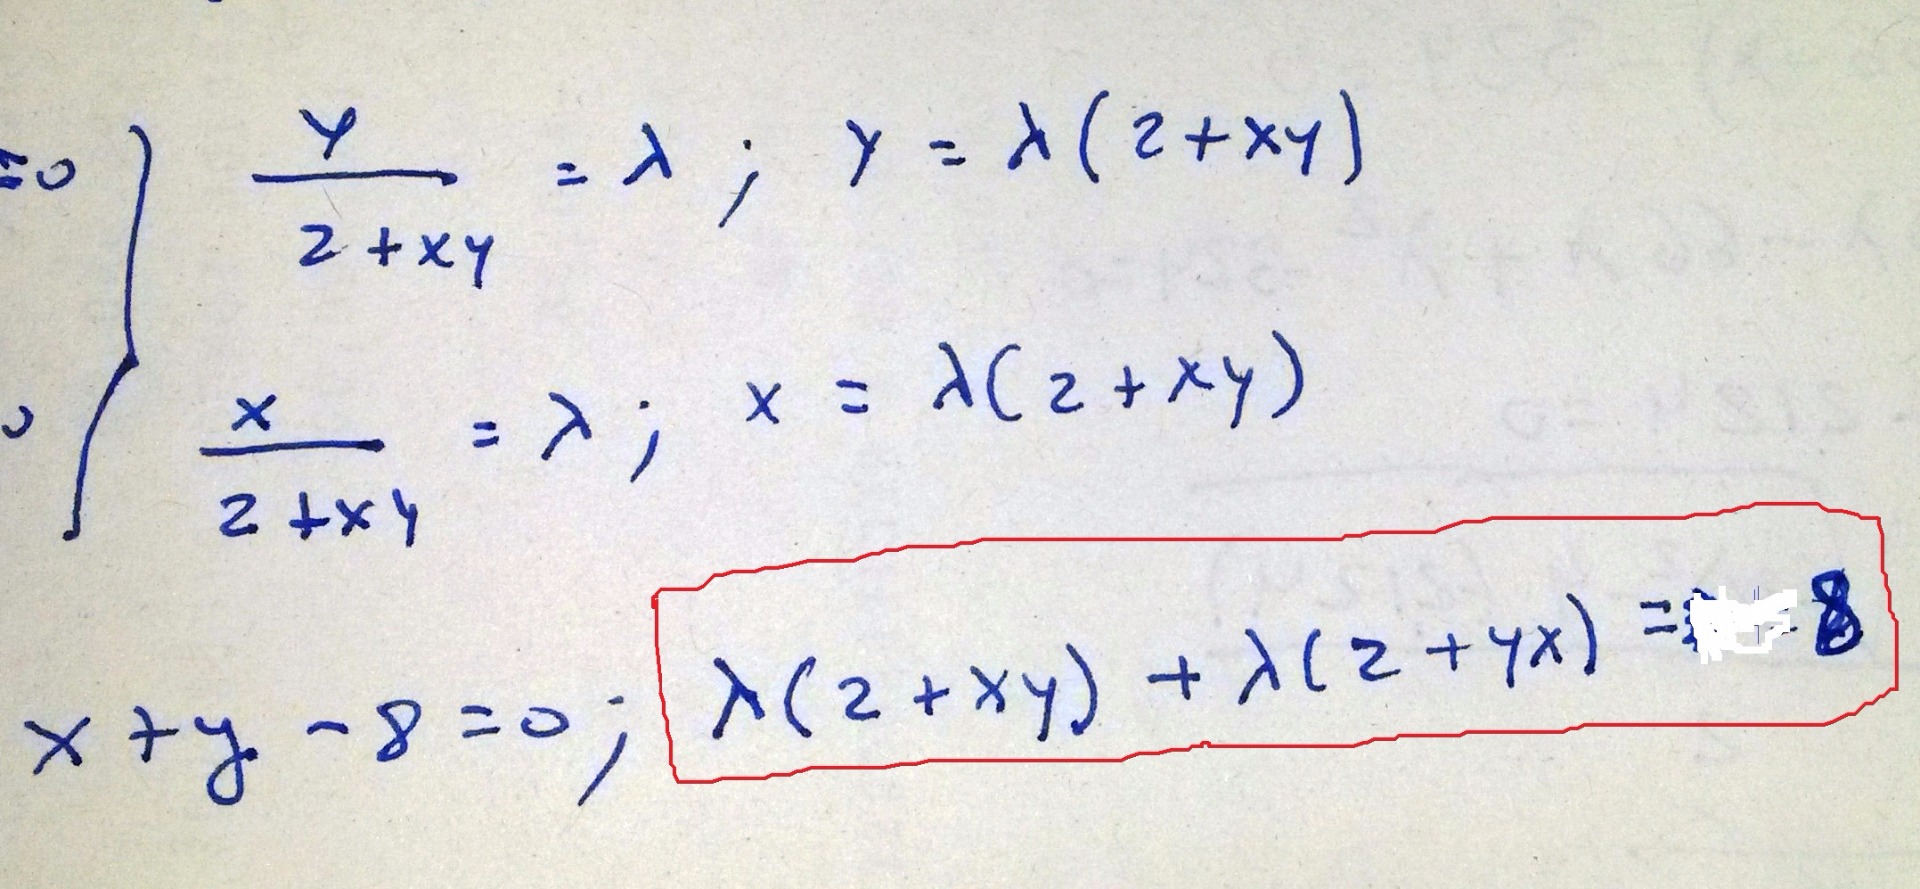 =0 } y/(2+xy) = λ ; y = λ(2+xy)
0 } x/(2+xy) = λ ; x = λ(2+xy)
x+y-8=0 ; λ(2+xy) + λ(2+yx) = 8